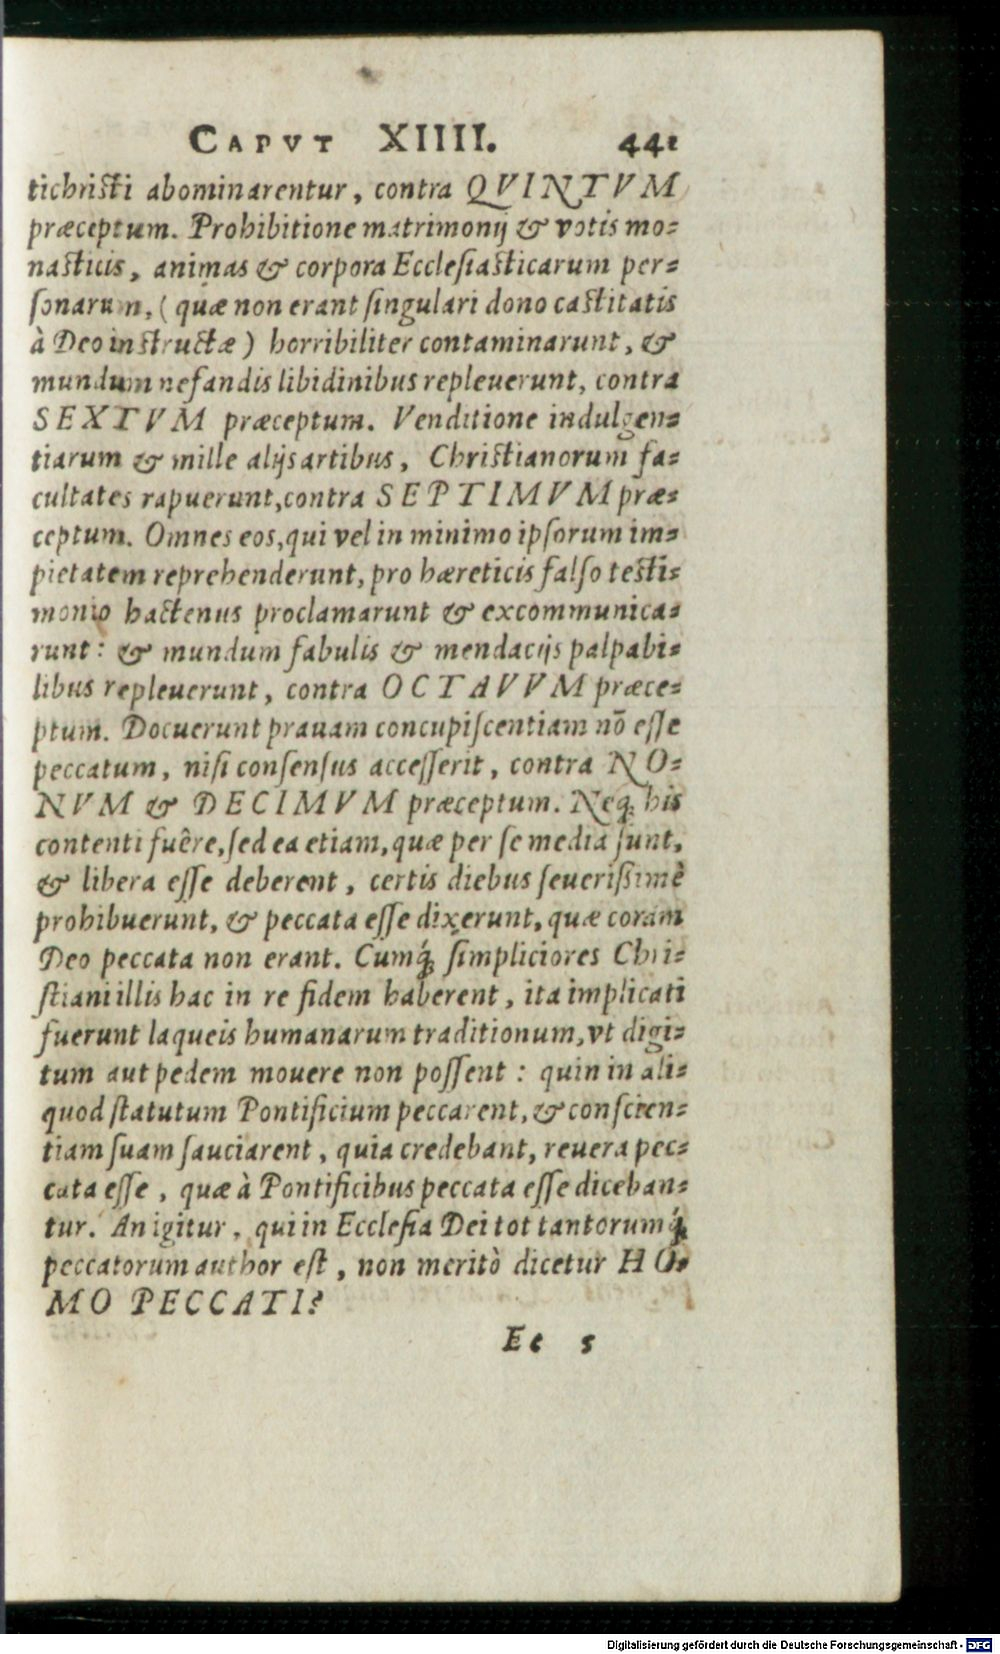 CAPVT XIIII. 441
tichristi abominarentur, contra QVINTVM
præceptum. Prohibitione matrimonij & votis mo=
nasticis, animas & corpora Ecclesiasticarum per=
sonarum, (quæ non erant singulari dono castitatis
à Deo instructæ) horribiliter contaminarunt, &
mundum nefandis libidinibus repleuerunt, contra
SEXTVM præceptum. Venditione indulgen=
tiarum & mille alijs artibus, Christianorum fa=
cultates rapuerunt, contra SEPTIMVM præ=
ceptum. Omnes eos, qui vel in minimo ipsorum im=
pietatem reprehenderunt, pro hæreticis falso testi=
monio hactenus proclamarunt & excommunica=
runt: & mundum fabulis & mendacijs palpabi=
libus repleuerunt, contra OCTAVVM præce=
ptum. Docuerunt prauam concupiscentiam nō esse
peccatum, nisi consensus accesserit, contra NO=
NVM & DECIMVM præceptum. Neq; his
contenti fuêre, sed ea etiam, quæ per se media sunt,
& libera esse deberent, certis diebus seuerißimè
prohibuerunt, & peccata esse dixerunt, quæ coram
Deo peccata non erant. Cumq́; simpliciores Chri=
stiani illis hac in re fidem haberent, ita implicati
fuerunt laqueis humanarum traditionum, vt digi=
tum aut pedem mouere non possent: quin in ali=
quod statutum Pontificium peccarent, & conscien=
tiam suam sauciarent, quia credebant, reuera pec=
cata esse, quæ à Pontificibus peccata esse diceban=
tur. An igitur, qui in Ecclesia Dei tot tantorumq́;
peccatorum author est, non meritò dicetur HO=
MO PECCATI?
Ee 5
Digitalisierung gefördert durch die Deutsche Forschungsgemeinschaft - DFG